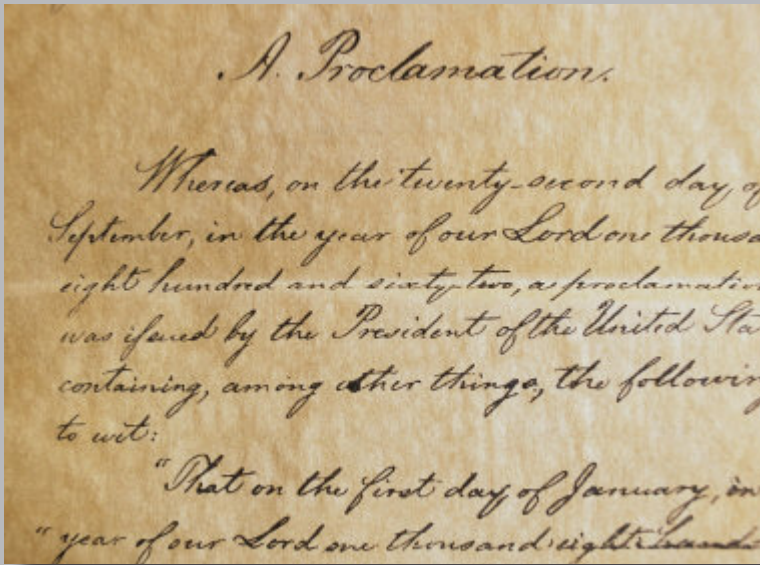 A. Proclamation.
Whereas, on the twenty-second day of
September, in the year of our Lord one thousa
eight hundred and sixty-two, a proclamation
was issued by the President of the United Sta
containing, among other things, the following
to wit:
"That on the first day of January, in
" year of our Lord one thousand eight hundr